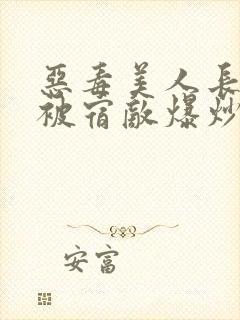 惡毒美人長
被宿敵爆炒
安富